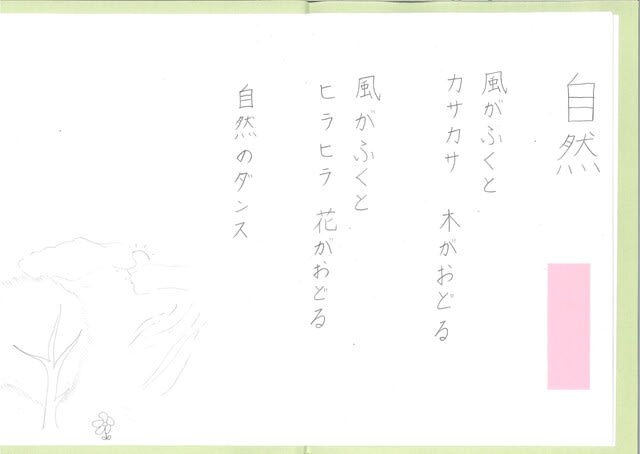 自然
風がふくと
カサカサ　木がおどる
風がふくと
ヒラヒラ　花がおどる
自然のダンス